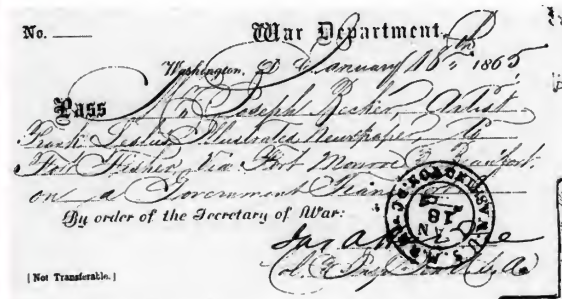 No. War Department.
Washington, D C January 18th, 1865
Pass Mr Joseph Becker, Artist
Frank Leslies Illustrated Newspaper, To
Fort Fisher, Via Fort Monroe & Beaufort,
on a Government
By order of the Secretary of War:
JAN
18
Jas A
Col &
[Not Transferable.]